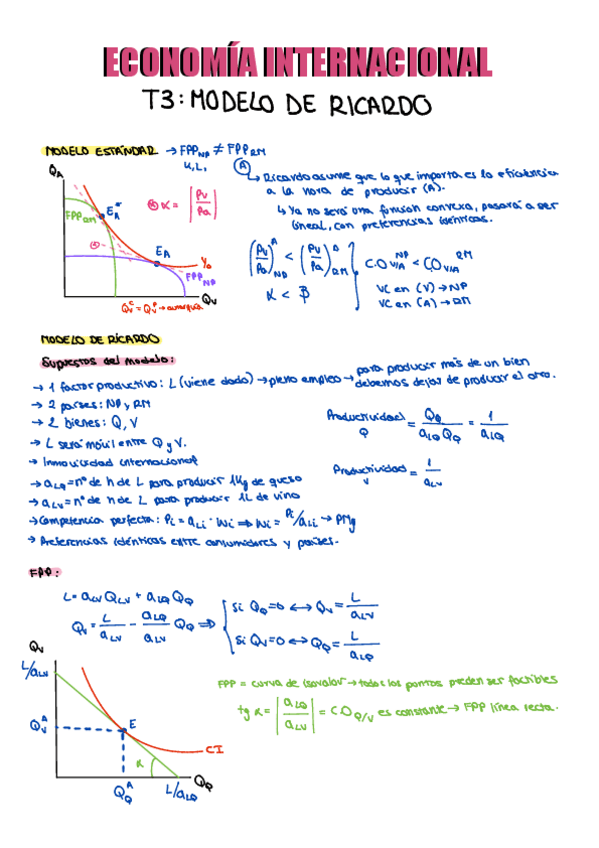 ECONOMÍA INTERNACIONAL
T3: MODELO DE RICARDO
MODELO ESTÁNDAR → FPP_NP ≠ FPP_RM
K, L,
(A) ↳ Ricardo asume que lo que importa es la eficiencia
a la hora de producir (A).
↳ Ya no será una función convexa, pasará a ser
lineal, con preferencias idénticas.
Q_A
FPP_RM
E_A*
α = |Pv/Pa|
E_A
Y_0
FPP_NP
Q_V
Q_V^C = Q_V^P → autarquía
(Pv/Pa)^A_NP < (Pv/Pa)^A_RM
α < β
CO_V/A^NP < CO_V/A^RM
VC en (V) → NP
VC en (A) → RM
MODELO DE RICARDO
Supuestos del modelo:
→ 1 factor productivo: L (viene dado) → pleno empleo → para producir más de un bien
debemos dejar de producir el otro.
→ 2 países: NP y RM
→ 2 bienes: Q, V
→ L será móvil entre Q y V.
→ Inmovilidad internacional
→ a_LQ = nº de h de L para producir 1Kg de queso
→ a_LV = nº de h de L para producir 1L de vino
→ Competencia perfecta: Pi = a_Li · Wi ⇒ Wi = Pi/a_Li → PMg
→ Preferencias idénticas entre consumidores y países.
Productividad Q = Q_Q / a_LQ Q_Q = 1 / a_LQ
Productividad V = 1 / a_LV
FPP:
L = a_LV Q_LV + a_LQ Q_Q
Q_V = L/a_LV - a_LQ/a_LV Q_Q ⇒
Si Q_Q = 0 ↔ Q_V = L/a_LV
Si Q_V = 0 ↔ Q_Q = L/a_LQ
Q_V
L/a_LV
Q_V^A
E
CI
α
Q_Q^A
L/a_LQ
Q_Q
FPP = curva de isovalor → todos los puntos pueden ser factibles
tg α = |a_LQ/a_LV| = CO_Q/V es constante → FPP línea recta.